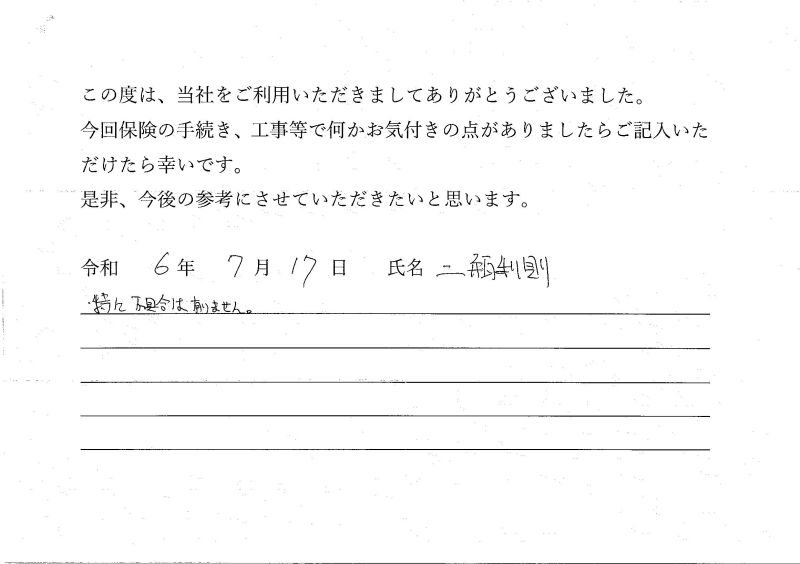 この度は、当社をご利用いただきましてありがとうございました。
今回保険の手続き、工事等で何かお気付きの点がありましたらご記入いた
だけたら幸いです。
是非、今後の参考にさせていただきたいと思います。
令和 6 年 7 月 17 日 氏名 二瓶利則
・特に不具合は有りません。